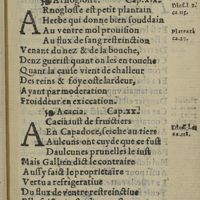 Arnoglosse. Cap.xix.
ARnoglosse est petit plantain
Herbe qui donne bien souddain
Au ventre mol prouision
Au flux de sang restrinction
Venant du nez & de la bouche,
Denz guerist quant on les en touche
Quant la caule vient de challeur
Des reins & foye oste lardeur,
Ayant par moderation
Froiddeur en exiccation.
Acacia. Cap.xx.
Cacia iust de fructiers
En Capadoce, seiche au tiers
Aulcuns ont cuyde que ce fust
Daulcunes prunelles le iust
Mais Gallien dict le contraire
Aussy faict le proprietaire
Vertu a refrigeratiue
Du flux de ventre restrinctiue
Diosl. 2.
ca.115.
ca.27.
ca.118.